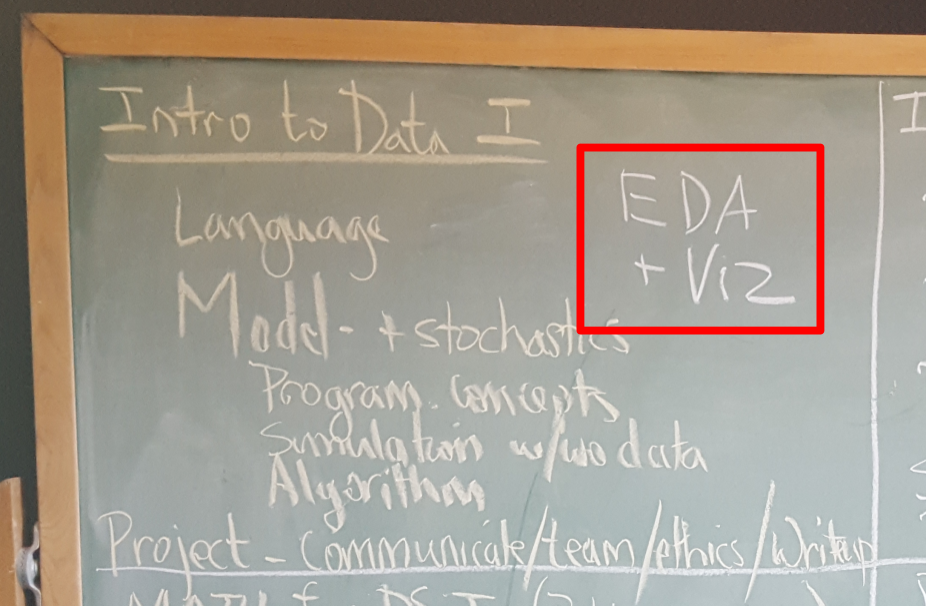 Intro to Data I
EDA
+ Viz
Language
Model - + stochastics
Program. Concepts
Simulation w/wo data
Algorithm
Project - Communicate/team/ethics/Writeup
I